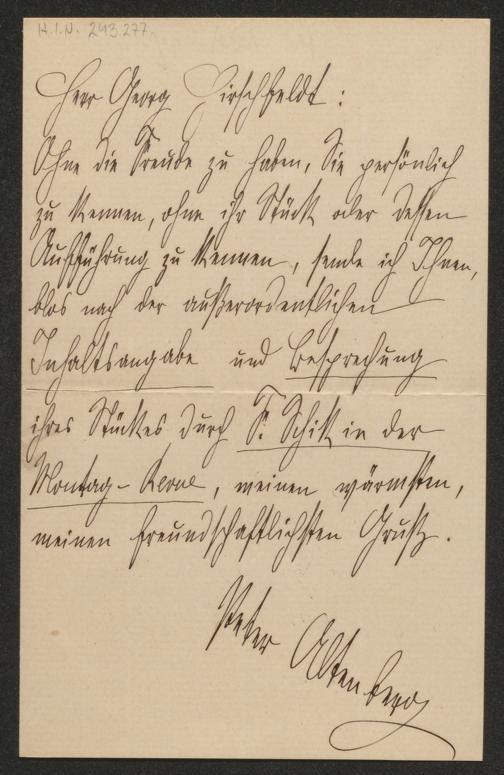 H.I.N. 243.277.
Herr Georg Hirschfeldt:
Ohne die Freude zu haben, Sie persönlich
zu kennen, ohne ihr Stück oder dessen
Aufführung zu kennen, sende ich Ihnen,
blos nach der außerordentlichen
Inhaltsangabe und Besprechung
ihres Stückes durch F. Schik in der
Montag-Revue, meinen wärmsten,
meinen freundschaftlichsten Gruß.
Peter Altenberg